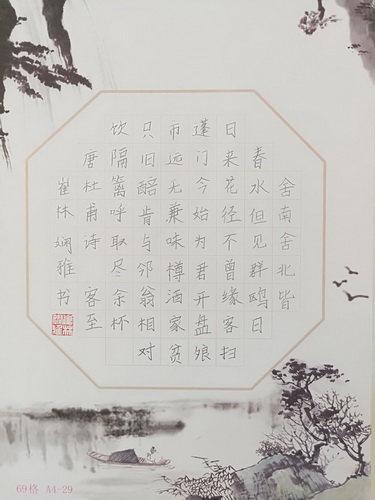 舍南舍北皆
春水但见群鸥日
日来花径不曾缘客扫
蓬门今始为君开盘飧
市远无兼味樽酒家贫
只旧醅肯与邻翁相对
饮隔篱呼取尽余杯
唐杜甫诗 客至
崔林娴雅书
69格 A4-29